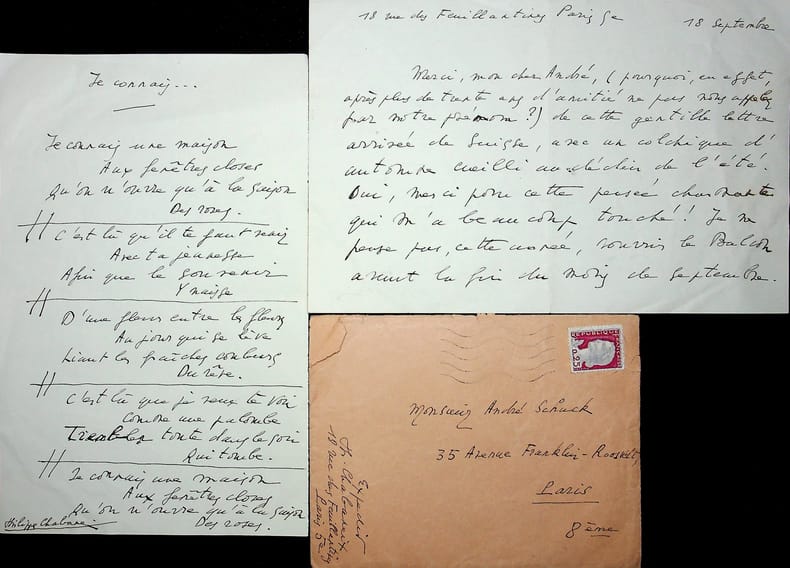 Je connais...
Je connais une maison
Aux fenêtres closes
Qu'on n'ouvre qu'à la saison
Des roses.
C'est là qu'il te faut venir
Avec ta jeunesse
Afin que le souvenir
Y naisse
D'une fleur entre les fleurs
Au jour qui se lève
Liant les fraîches couleurs
Du rêve.
C'est là que je veux te voir
Comme une palombe
Trembler toute dans le soir
Qui tombe.
Je connais une maison
Aux fenêtres closes
Qu'on n'ouvre qu'à la saison
Des roses.
Philippe Chabaneix
18 rue des Feuillantines Paris 5e
18 Septembre
Merci, mon cher André, (pourquoi, en effet,
après plus de trente ans d'amitié ne pas nous appeler
par notre prénom ?) de cette gentille lettre
arrivée de Suisse, avec un colchique d'
automne cueilli au déclin de l'été.
Oui, merci pour cette pensée charmante
qui m'a beaucoup touché ! Je ne
pense pas, cette année, rouvrir le Balcon
avant la fin du mois de septembre.
REPUBLIQUE FRANÇAISE
0,25
Monsieur André Schuck
35 Avenue Franklin-Roosevelt,
Paris
8ème
Expedit
Ph. Chabaneix
18 rue des Feuillantines
Paris 5e